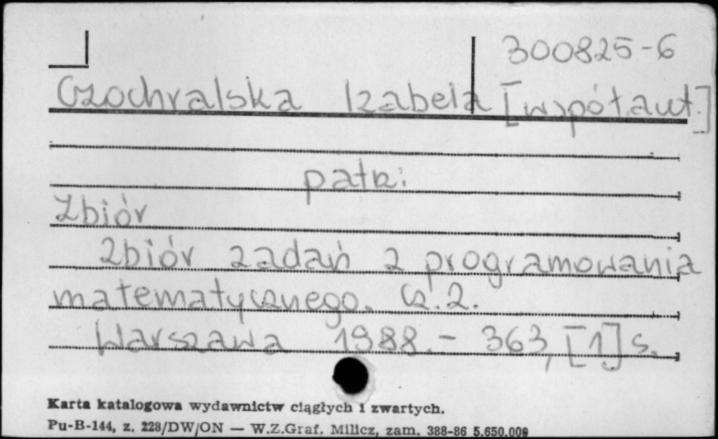 300825-6
Czochralska Izabela [współaut.]
patrz:
Zbiór
Zbiór zadań z programowania
matematycznego. Cz. 2.
Warszawa 1988. - 363, [1] s.
Karta katalogowa wydawnictw ciągłych i zwartych.
Pu-B-144, z. 228/DW/ON — W.Z.Graf. Milicz, zam. 388-86 5.650.000